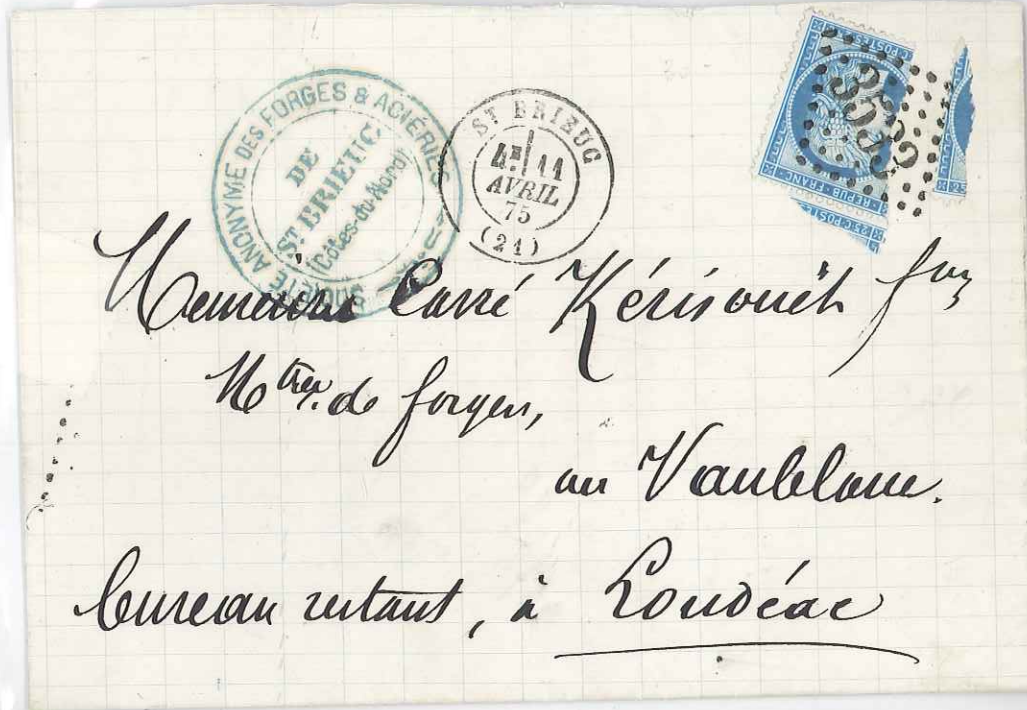 SOCIÉTÉ ANONYME DES FORGES & ACIÉRIES
DE
ST BRIEUC
(Côtes-du-Nord)
ST BRIEUC
4E 11
AVRIL
75
(21)
C. POSTES
REPUB. FRANC.
25 C. POSTE
25
Messieurs Carré Kérisouët
Mtres de forges,
au Vaublanc.
bureau restant, à Loudéac